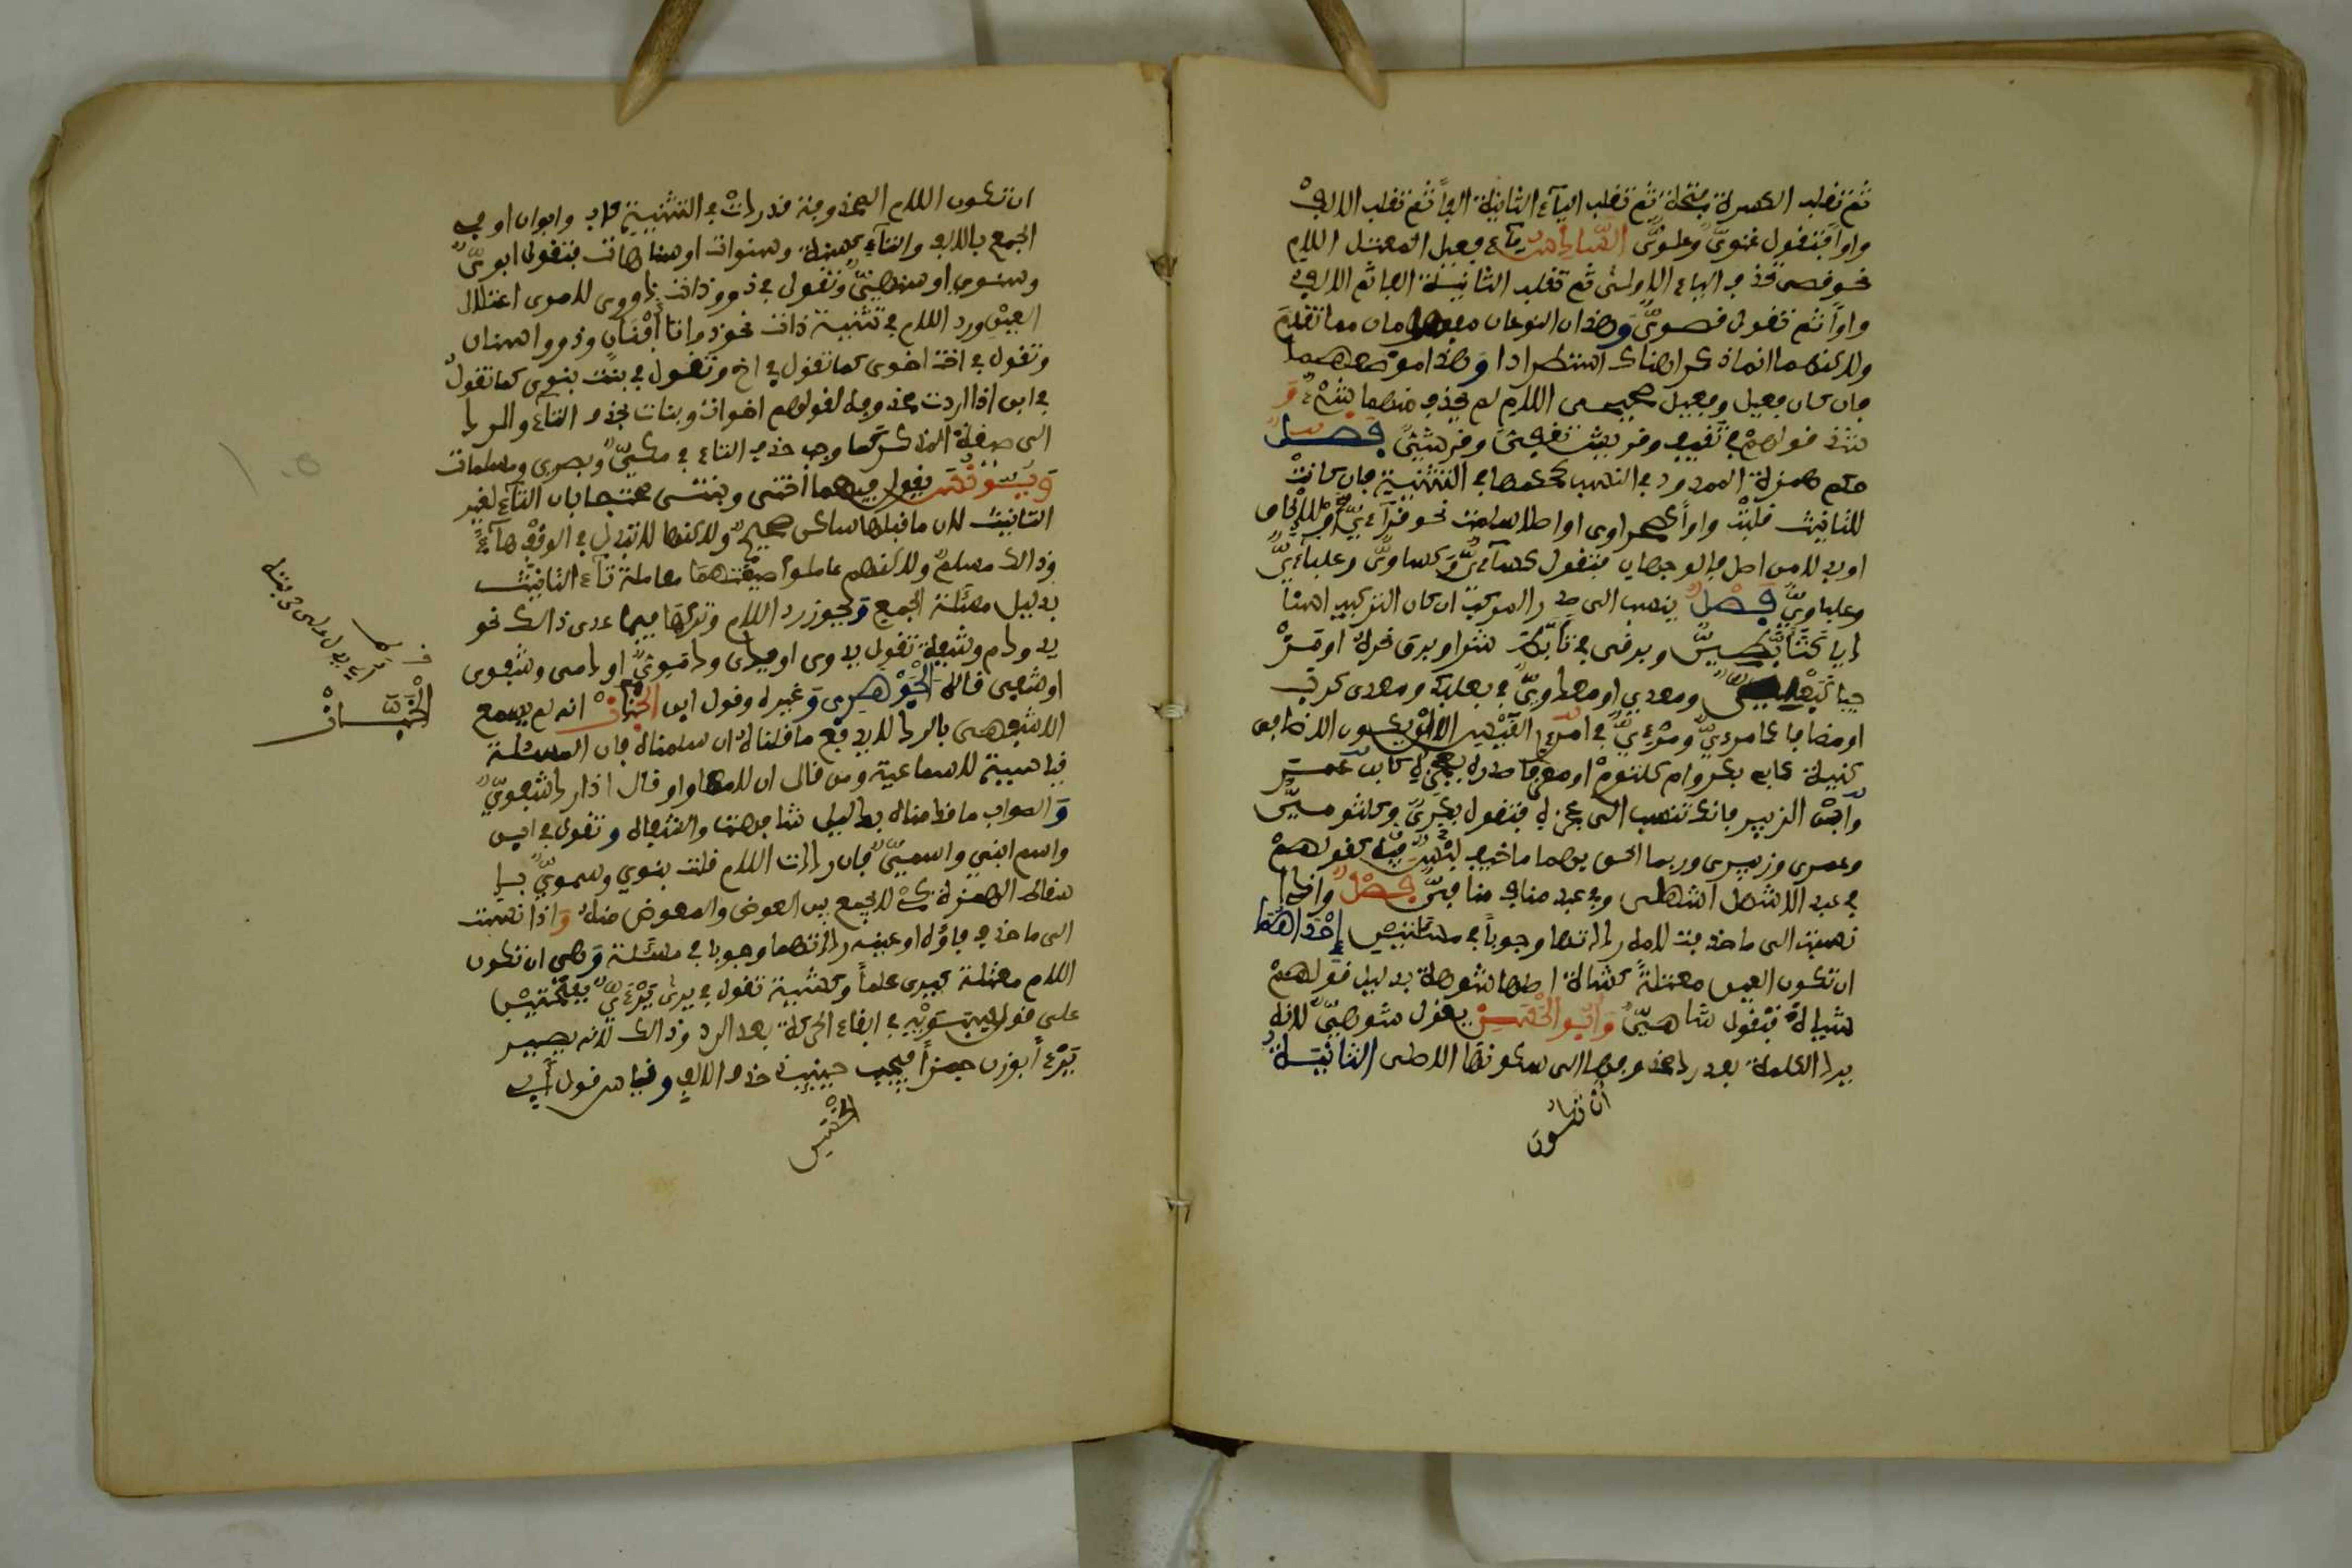 ثم تقلب الكسرة فتحة ثم تقلب الياء الثانية الفا ثم تقلب الالف
واوا فتقول غنوي وعلوي السادس ياء فعيل المعتل اللام
نحو قصي تحذف الياء الاولى ثم تقلب الثانية الفا ثم الالف
واوا ثم تقول قصوي وهذان النوعان مفهومان مما تقدم
ولاكنهما انما ذكرا هناك استطرادا وهذا موضعهما
فان كان فعيل وفعيل صحيحي اللام لم يحذف منهما شيء و
شذ قولهم في ثقيف وقريش ثقفي وقرشي فصل
حكم همزة الممدود في النسب كحكمها في التثنية فان كانت
للتانيث قلبت واوا كصحراوي او اصلا سلمت نحو قرائي او للالحاق
او بدلا من اصل فالوجهان فتقول كسائي وكساوي وعلبائي
وعلباوي فصل ينسب الى صدر المركب ان كان التركيب اسنا
ديا كتابطي وبرقي في تابط شرا وبرق نحره او مزْ
جيا كبعلي ومعدي او معدوي في بعلبك ومعدي كرب
او اضافيا كامرءي ومرءي في امرء القيس الا ان يكون الاضافي
كنية كابي بكر وام كلثوم او معرفا صدره بعجزه كابن عمر
وابن الزبير فانك تنسب الى عجزه فتقول بكري وكلثومي
وعمري وزبيري وربما الحق بهما ما خيف لبْسه كقولهم
في عبد الاشهل اشهلي وفي عبد مناف منافي فصل واذا
نسبت الى ما حذفت لامه رددتها وجوبا في مسئلتين احداهما
ان تكون العين معتلة كشاة اصلها شوهة بدليل قولهم
شياه فتقول شاهي وابو الحسن يقول شوهي لانه
يرد الكلمة بعد رد محذوفها الى سكونها الاصلي الثانية
ان تكون
ان تكون اللام المحذوفة قد ردت في التثنية كاب وابوان او في
الجمع بالالف والتاء كسنة وسنوات او سنهات فتقول ابوي
وسنوي او سنهي وتقول في ذو وذات ذووي لامرين اعتلال
العين ورد اللام في تثنية ذات نحو ذواتا افنان وذووا اسنان
وتقول في اخت اخوي كما تقول في اخ وتقول في بنت بنوي كما تقول
في ابن اذا رددت محذوفه لقولهم اخوات وبنات بحذف التاء والرد
الى صيغة المذكر كما وجب حذف التاء في مكي وبصري ومسلمات
ويونس يقول فيهما اختي وبنتي محتجا بان التاء لغير
التانيث لان ما قبلها ساكن صحيح ولاكنها لا تبدل في الوقف هاء
وذالك مسلم ولاكنهم عاملوا صيغتهما معاملة تاء التانيث
بدليل مسئلة الجمع ويجوز رد اللام وتركها فيما عدى ذالك نحو
يد ودم وشفة تقول يدوي او يدي ودموي او دمي وشفوي
او شفهي قاله الجوهري وغيره وقول ابن الخباز انه لم يسمع
الا شفهي بالرد لا يدفع ما قلناه ان سلمناه فان المسئلة
قياسية لا سماعية ومن قال ان لامها واو قال اذا رد شفوي
والصواب ما قدمناه بدليل شافهت والشفاه وتقول في ابن
واسم ابني واسمي فان رددت اللام قلت بنوي وسموي با
سقاط الهمزة كي لا يجمع بين العوض والمعوض منه واذا نسبت
الى ما حذف فاؤه او عينه رددتهما وجوبا في مسئلة وهي ان تكون
اللام معتلة كيرى علما وكشية تقول في يرى يرءي بفتحتين
على قول سيبويه في ابقاء الحركة بعد الرد وذالك لانه يصير
يرءا بوزن جمزا فيجب حينئذ حذف الالف وقياس قول ابي
الحسن
الخباز